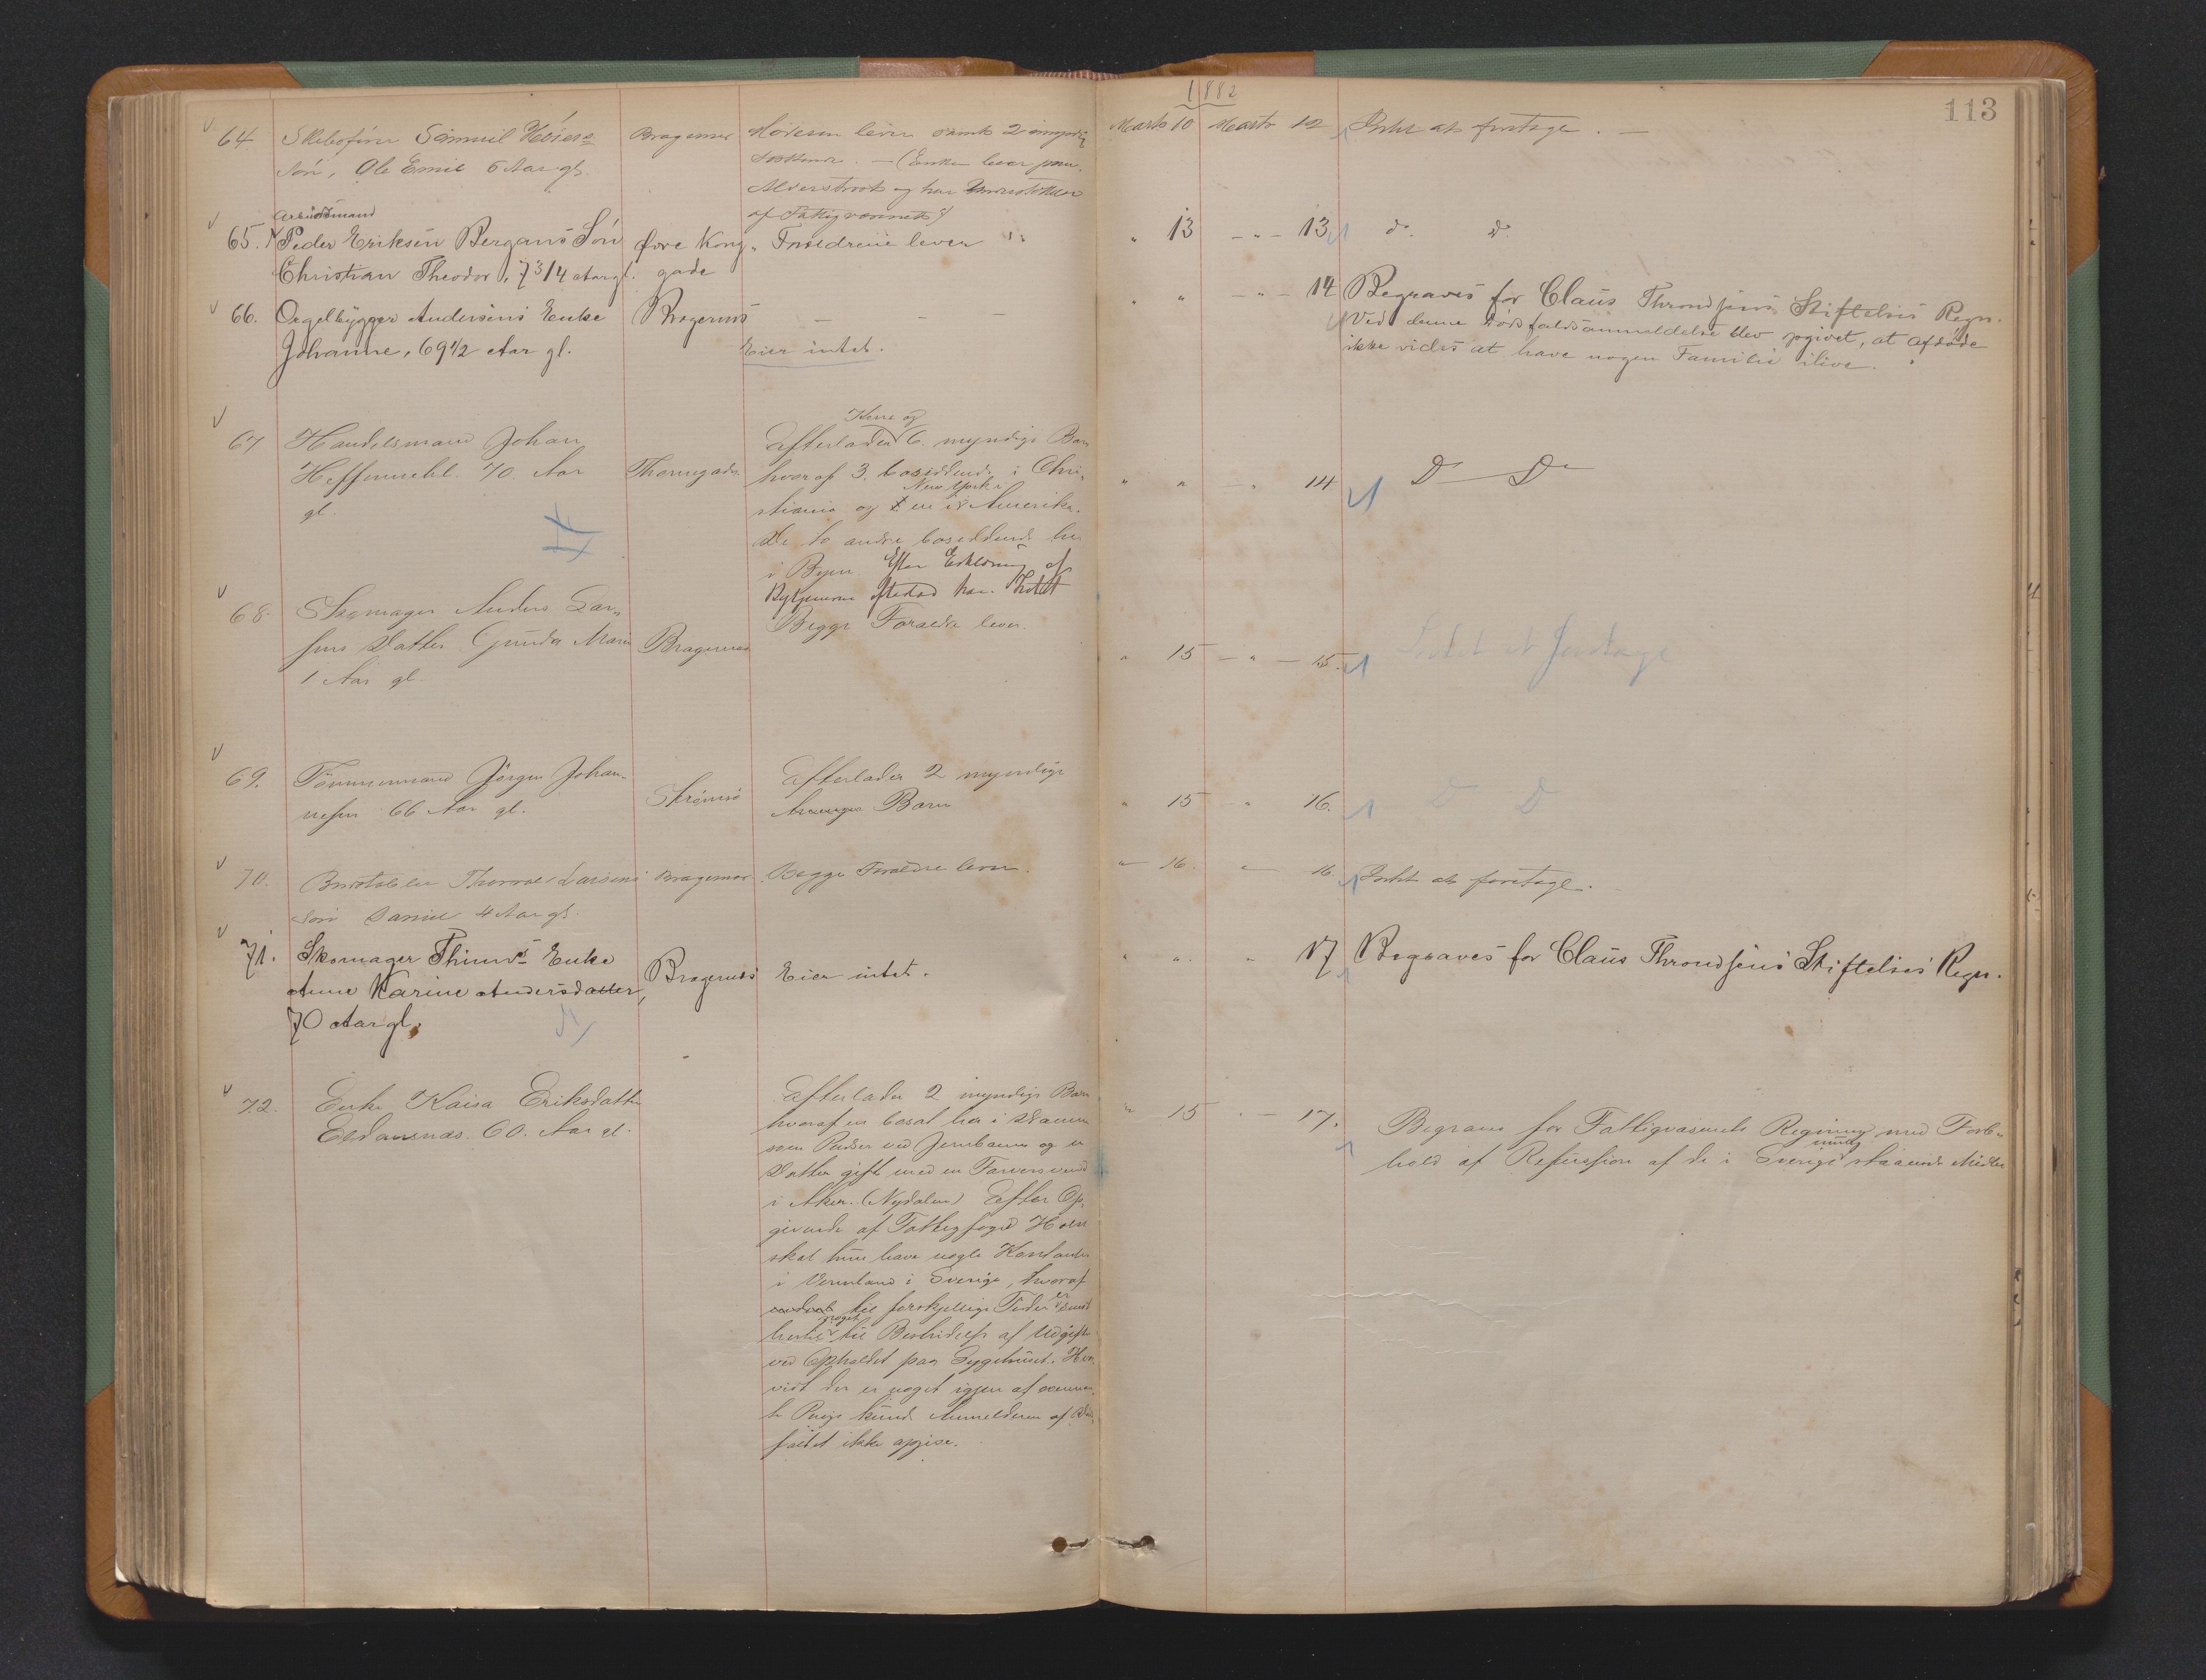 1882
113
64 Skibsfører Samuel Høiers Bragernes Moderen lever samt 2 umyndig Marts 10 Marts 12 Intet at foretage. —
Søn, Ole Emil 6 Aar gl. Søskende. — (Enken lever paa
Alderstrøst og har Understøttelse
af Fattigvæsenet)
Arbeidsmand
65. Peder Eriksen Bergans Søn Øvre Kong- Forældrene lever " 13 — " — 13 do. do.
Christian Theodor, 7 3/4 Aar gl. gade
66. Orgelbygger Andersens Enke Bragernes — — — " " — " — 14 Begraves for Claus Throndsens Stiftelses Regn.
Johanne, 69 1/2 Aar gl. Eier intet. Ved denne Dødsfaldsanmeldelse blev opgivet, at afdøde
ikke vides at have nogen Familie ilive.
Kone og
67 Handelsmand Johan Efterlader 6 myndige Børn
70 Aar Thornegade hvoraf 3 bosiddende i Chri- " " " 14 Do Do
gl. New York
stiania og en i Amerika.
De to andre bosiddende her
i Byen. Efter Erklæring af
har Intet
68. Skomager Anders Lar- Begge Forældre lever.
sens Datter Gunda Marie Bragernes " 15 — " — 15 Intet at foretage
1 Aar gl.
69. Tømmermand Jørgen Johan- Strømsø Efterlader 2 myndige
nesen 66 Aar gl. Børn " 15 " 16. D D
70. Thorvald Larsens Bragernes Begge Forældre lever. " 16. " 16. Intet at foretage.
Søn Daniel 4 Aar gl.
71. Skomager Thims Enke Bragernes Eier intet. " " " 17 Begraves for Claus Throndsens Stiftelses Regn.
Anne Karine Andersdatter,
70 Aar gl.
72. Enke Kaisa Eriksdatter Efterlader 2 myndige Børn " 15 " — 17. Begraves for Fattigvæsenets Regning med Forbe-
60. Aar gl. hvoraf en bosat her i Drammen
som Pudser ved Jernbanen og en hold af Refusion af de i Sverige staaende Midler
Datter gift med en Farversvend
i Aker. (Nydalen) Efter Op-
givende af Fattigfoged Holm
skal hun have nogle Kontanter
i Vermland i Sverige, hvoraf
til forskjellige Tider er sendt
noget
hertil til Bestridelse af Udgifter
ved Opholdet paa Sygehuset. Hvor-
vidt der er noget igjen af
Penge kunde Anmelderen af Døds-
faldet ikke opgive.